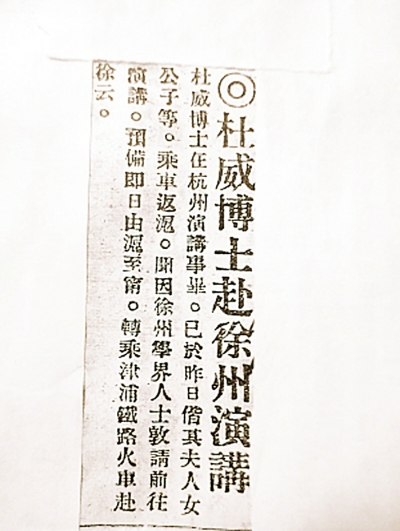 ◎杜威博士赴徐州演講
杜威博士在杭州演講事畢。已於昨日偕其夫人女
公子等。乘車返滬。聞因徐州學界人士敦請前往
演講。預備即日由滬至甯。轉乘津浦鐵路火車赴
徐云。